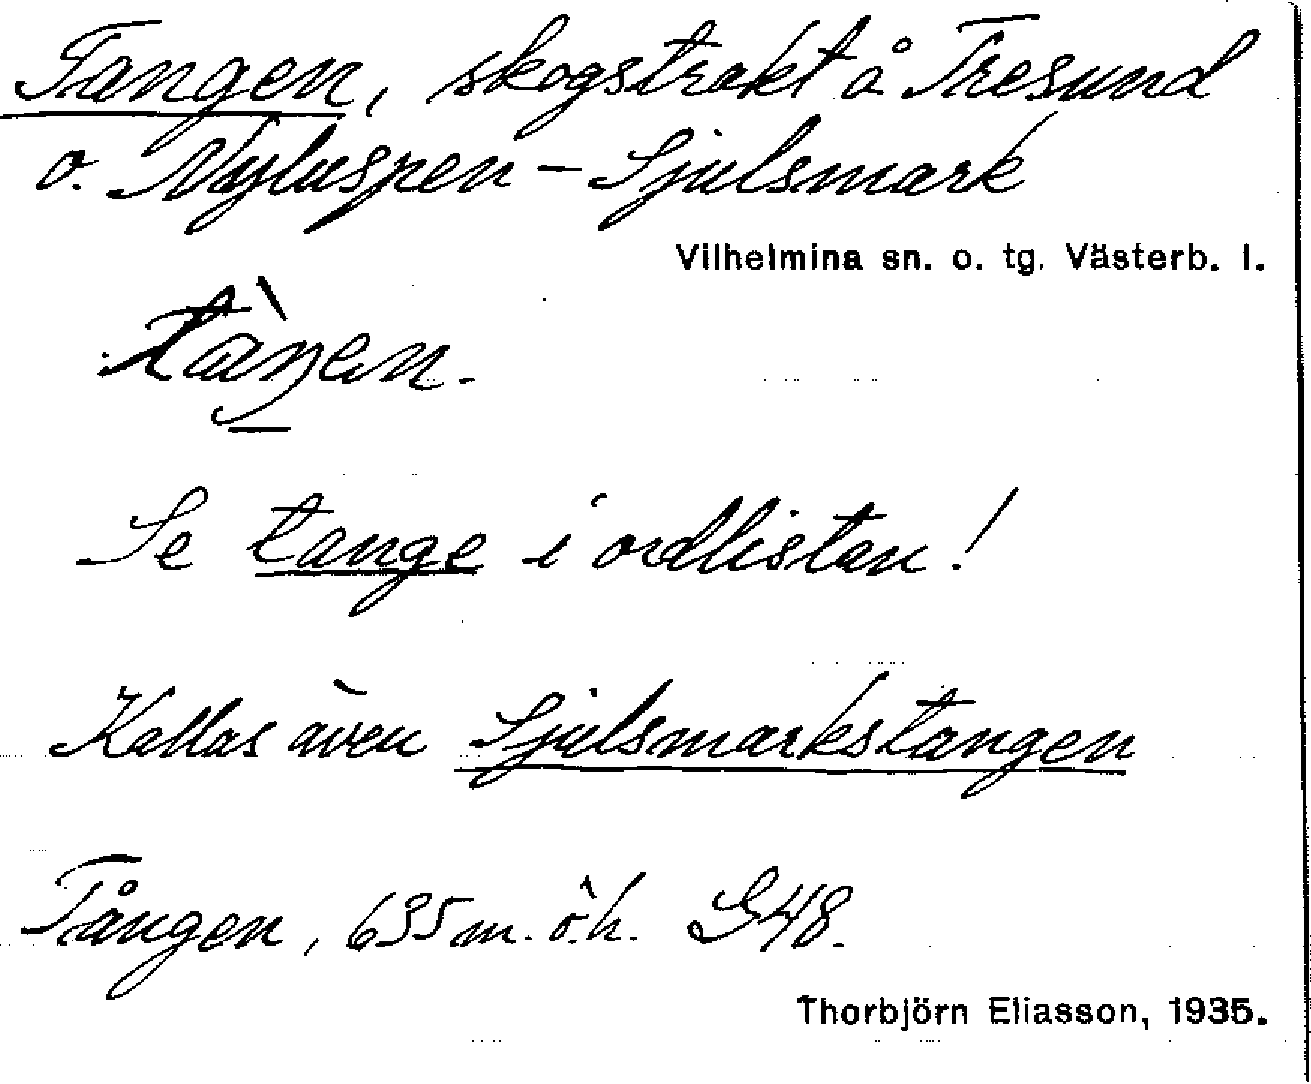 Tangen, skogstrakt å Tresund
o. Nyluspen - Sjulsmark
Vilhelmina sn. o. tg. Västerb. l.
tàŋen.
Se tange i ordlistan!
Kallas även Sjulsmarkstangen
Tången, 635 m. ö.h. G48.
Thorbjörn Eliasson, 1935.